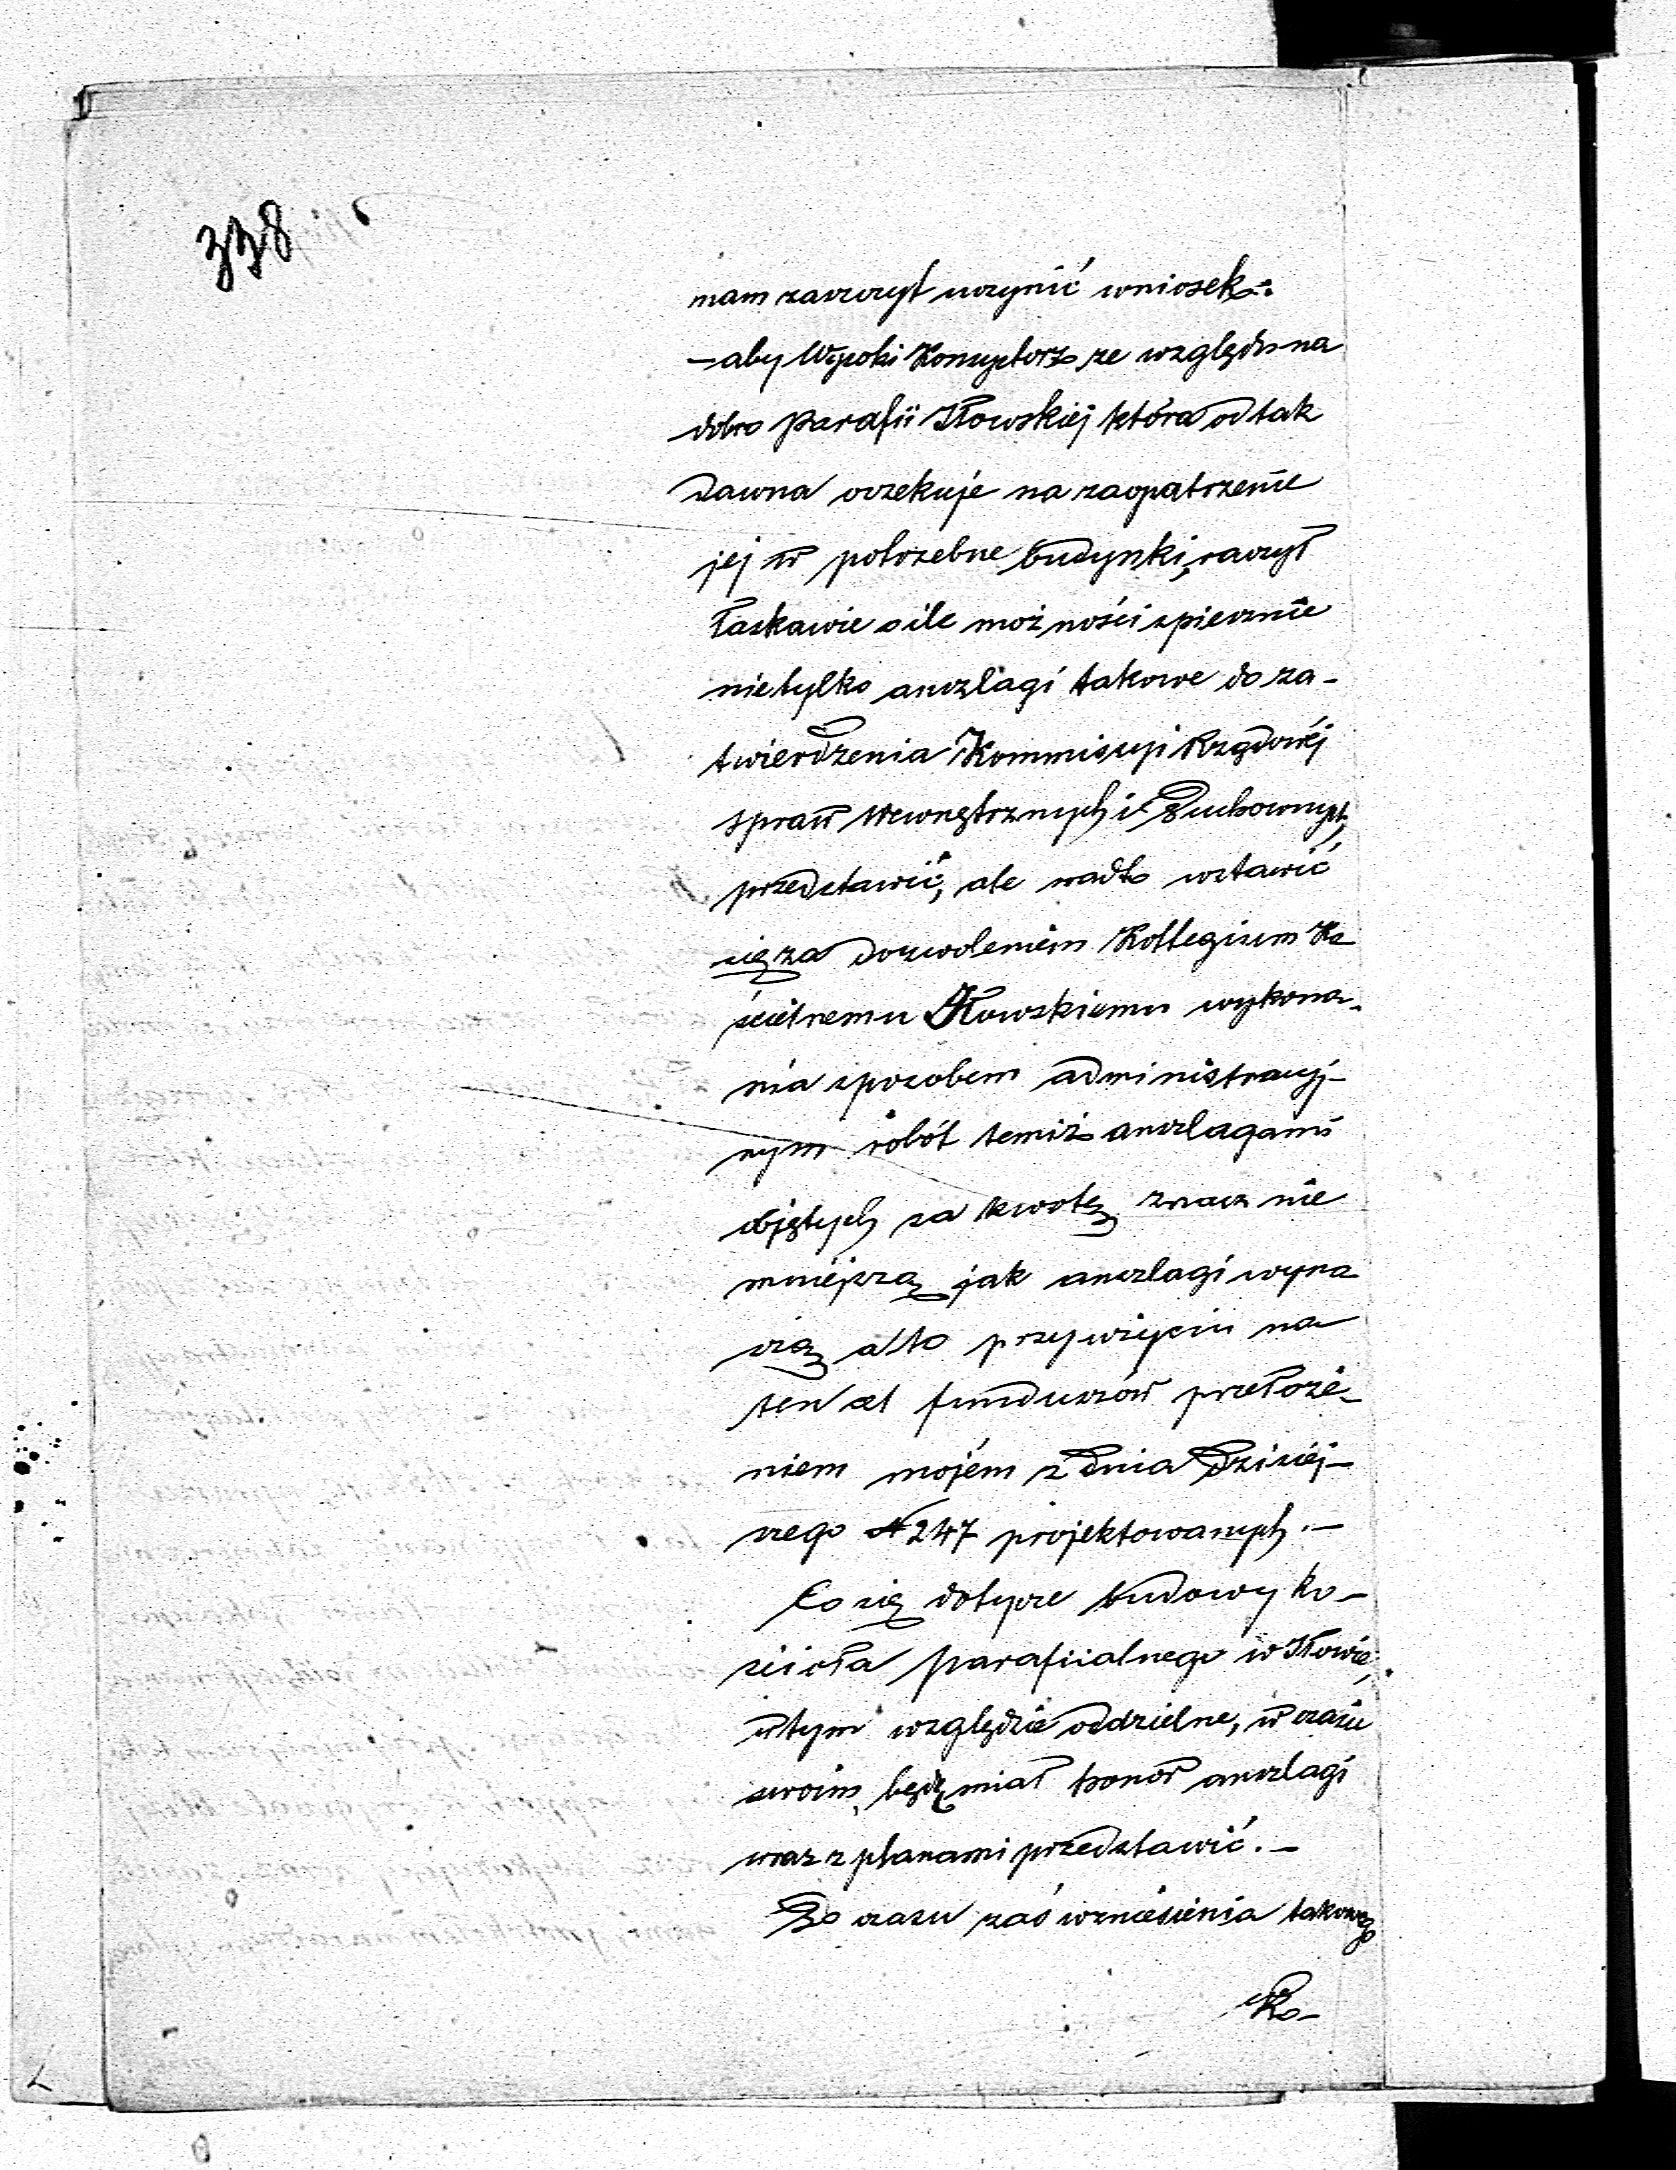 338
mam zaszczyt uczynić wniosek:
— aby Wysoki Konsystorz ze względu na
dobro Parafii Iłowskiej która od tak
dawna oczekuje na zaopatrzenie
jej w potrzebne budynki, raczył
łaskawie o ile możności spiesznie
nietylko anszlagi takowe do za-
twierdzenia Kommissyi Rządowéj
spraw Wewnętrznych i Duchownych
przedstawić, ale nadto wstawić
się za dozwoleniem Kollegium Ko
ścielnemu Iłowskiemu wykona-
nia sposobem administracyj-
nym robót temiż anszlagami
objętych za kwotę znacznie
mniejszą jak anszlagi wyno
szą a to przy użyciu na
ten cel funduszów przełoże-
niem mojém z dnia dzisiéj-
szego N 247 projektowanych. —
Co się dotycze budowy ko-
ścioła parafiialnego w Iłowie,
w tym względzie oddzielne, w czasie
swoim, będę miał honor anszlagi
wraz z planami przedstawić. —
Do czasu zaś wzniesienia takowego
Ko-